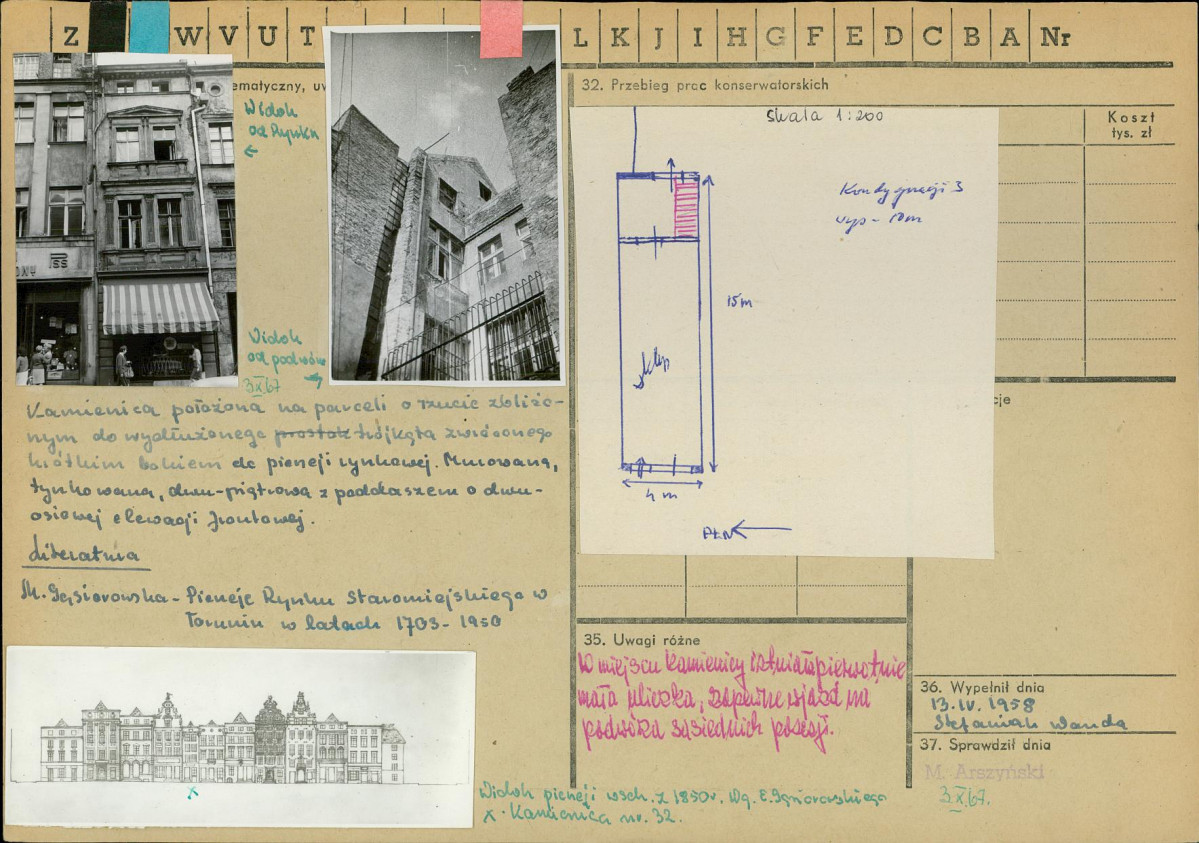 Z W V U T L K J I H G F E D C B A Nr
ematyczny, uw
32. Przebieg prac konserwatorskich
Koszt
tys. zł
Widok
od Rynku
PSS
Skala 1:200
Kondygnacji 3
wys - 10m
15m
sklep
4 m
PŁN
Widok
od podwórz
3 X 67
cje
Kamienica położona na parceli o rzucie zbliżo-
nym do wydłużonego prostok trójkąta zwróconego
krótkim bokiem do pierzeji rynkowej. Murowana,
tynkowana, dwu-piętrowa z poddaszem o dwu-
osiowej elewacji frontowej.
Literatura
M. Gąsiorowska - Pierzeje Rynku Staromiejskiego w
Toruniu w latach 1703 - 1950
35. Uwagi różne
W miejscu kamienicy istniała pierwotnie
mała uliczka, zapewne wjazd na
podwórza sąsiednich posesji.
36. Wypełnił dnia
13. IV. 1958
Stefaniak Wanda
37. Sprawdził dnia
M. Arszyński
3 X 67.
x
Widok pierzeji wsch. z 1850 r. Wg. E. Gąsiorowskiego
x - Kamienica nr. 32.